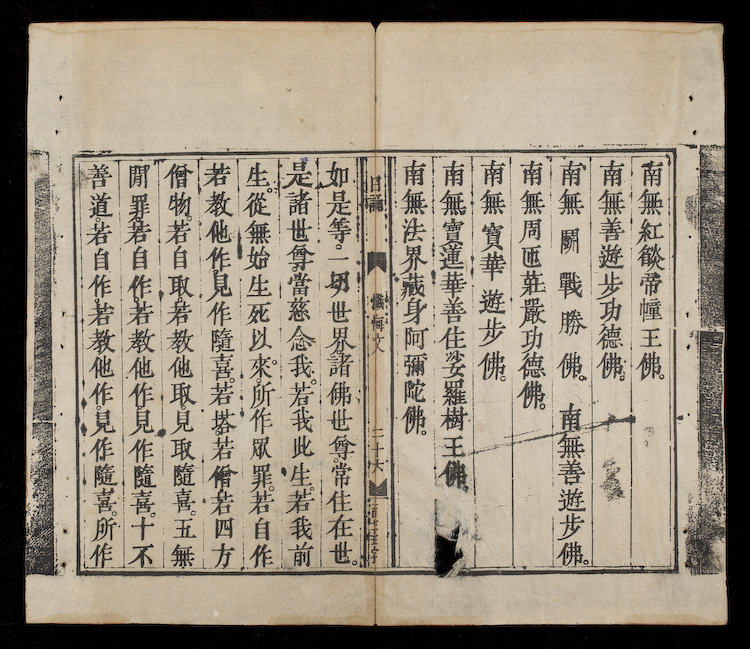 南無紅燄帝幢王佛。
南無善遊步功德佛。
南無鬭戰勝佛。 南無善遊步佛。
南無周匝莊嚴功德佛。
南無寶華遊步佛。
南無寶蓮華善住娑羅樹王佛
南無法界藏身阿彌陀佛。
日誦 懺悔文 二十六
如是等。一切世界諸佛世尊。常住在世。
是諸世尊。當慈念我。若我此生。若我前
生。從無始生死以來。所作眾罪。若自作
若教他作。見作隨喜。若塔若僧若四方
僧物。若自取。若教他取。見取隨喜。五無
間罪。若自作。若教他作。見作隨喜。十不
善道。若自作。若教他作。見作隨喜。所作